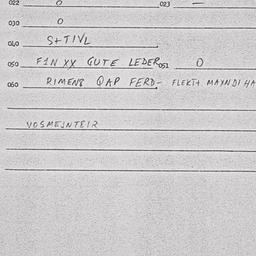 022 0 023 —
030 0
040 S+TIVL
050 FINXX GUTE LEDER 051 0
060 RIMENS QAP FERD- FLEKT+ MAYNDI HA
VOSMEJNTEIR